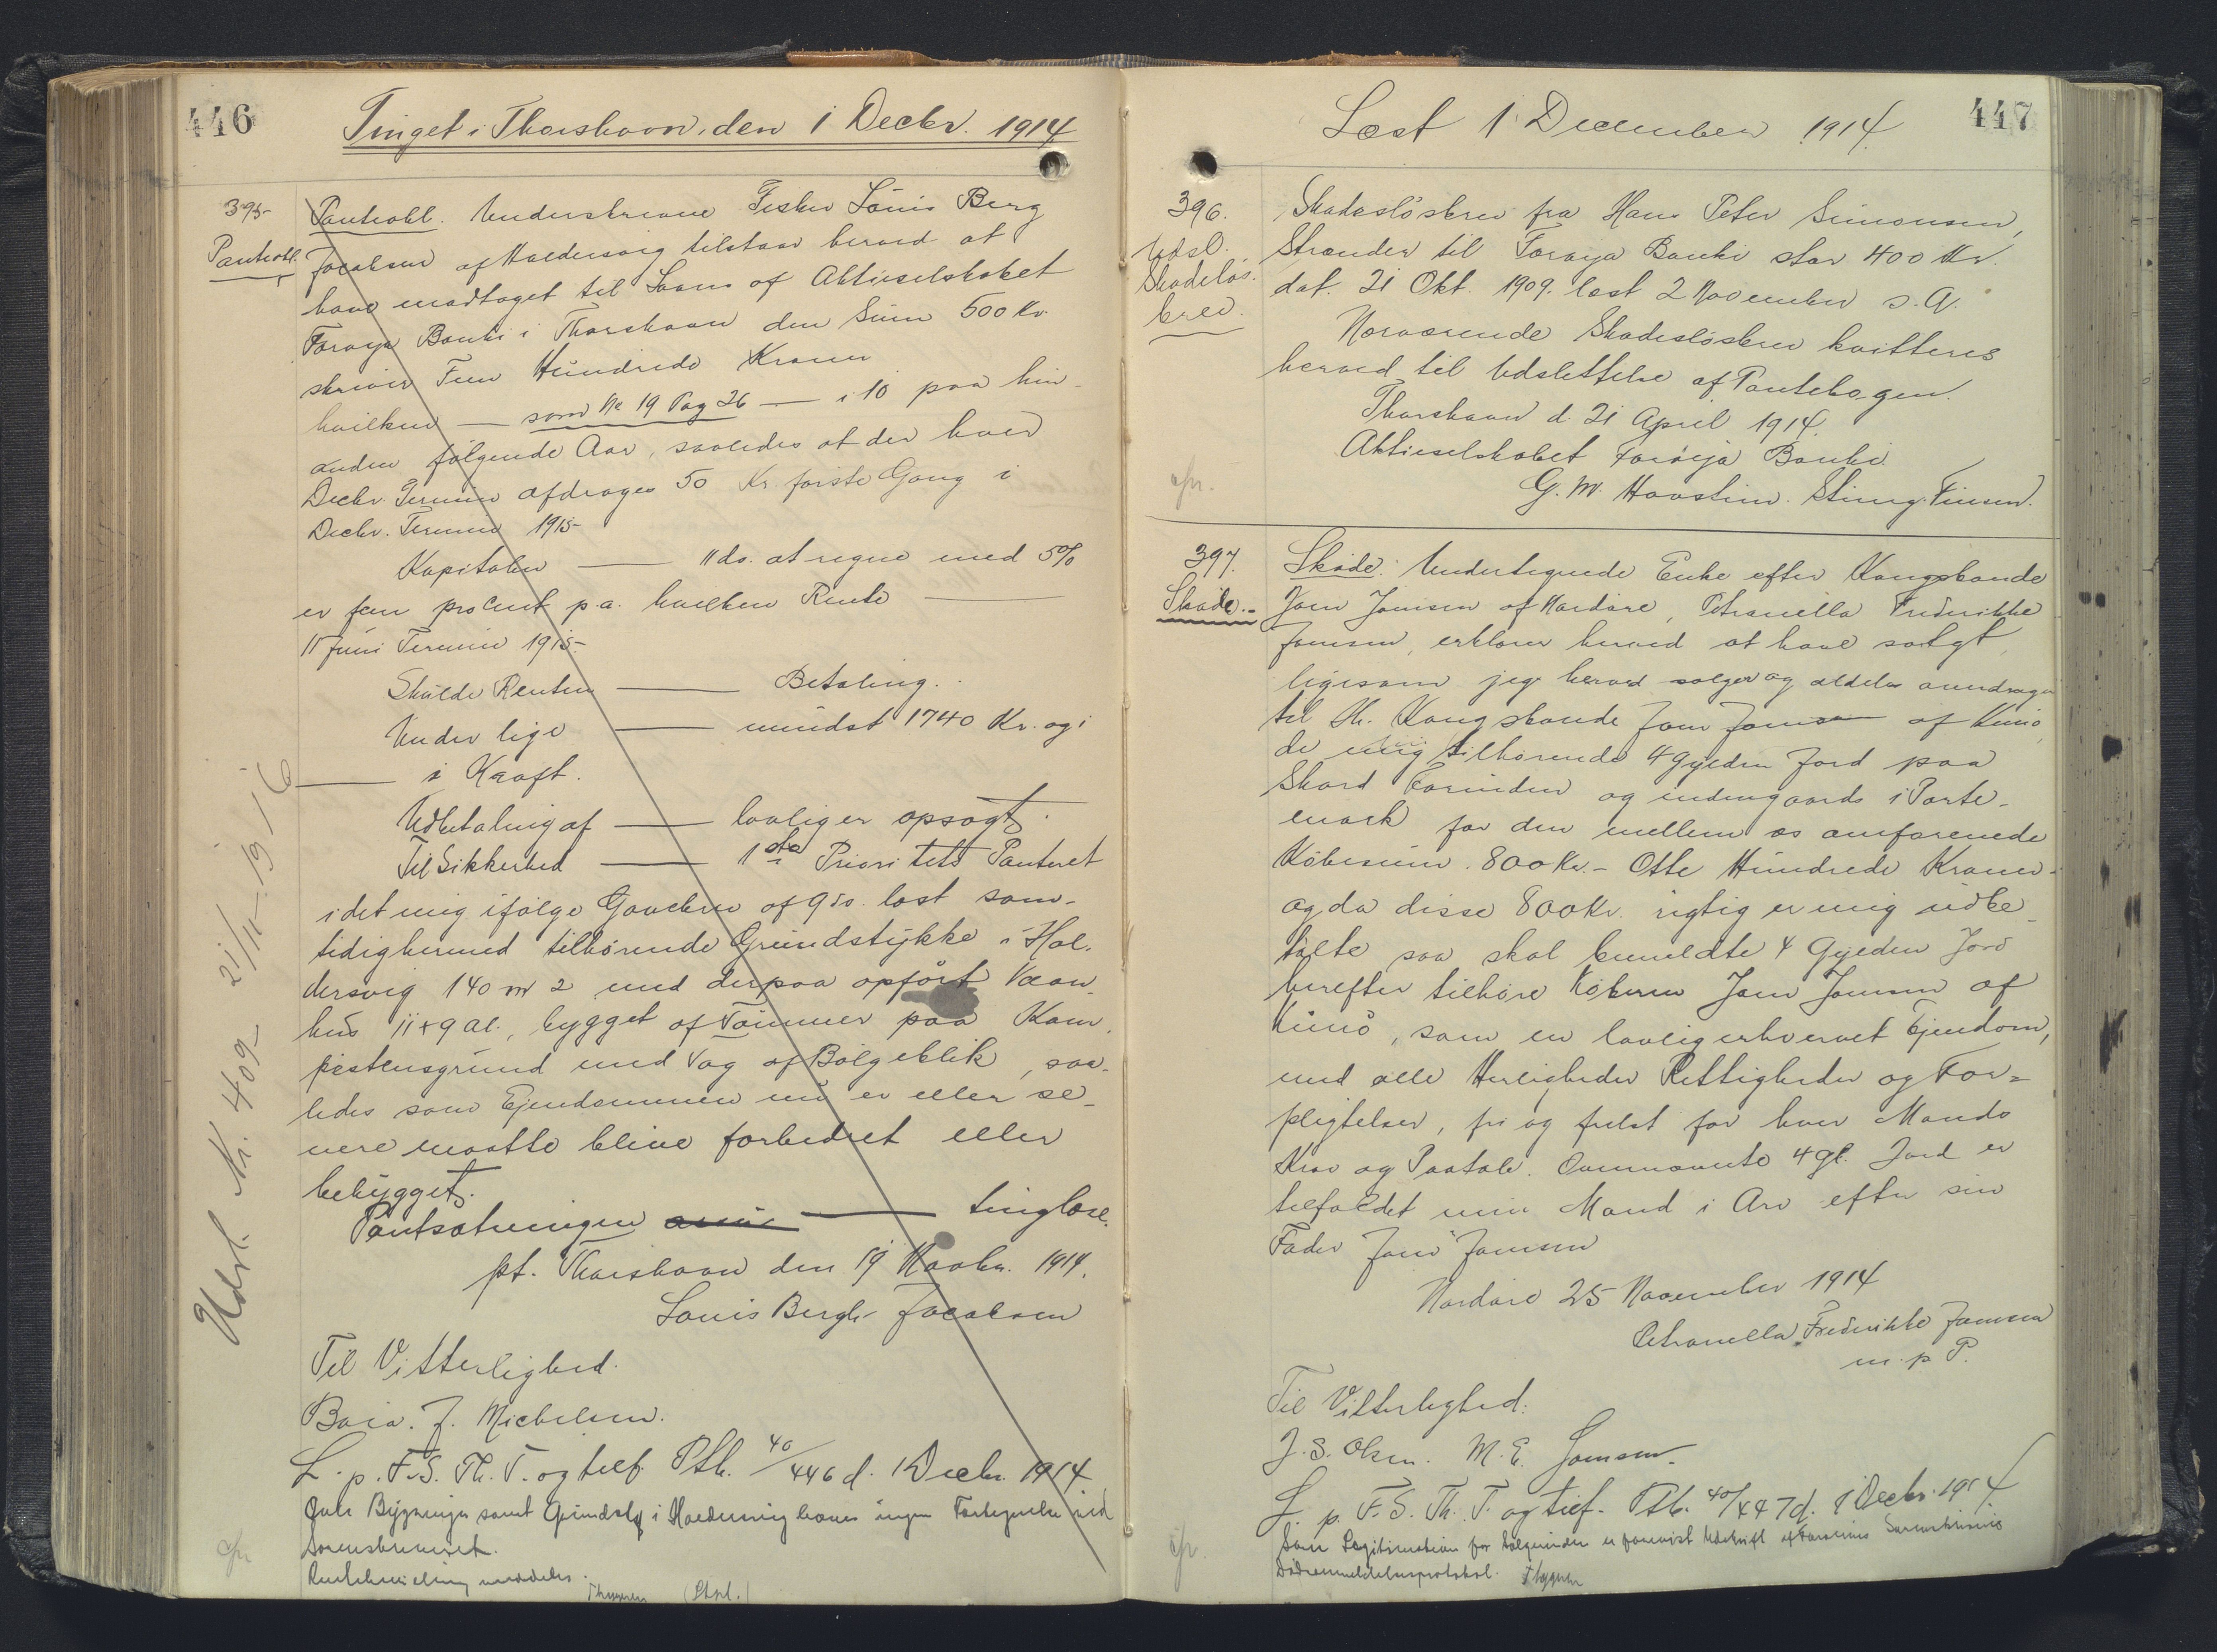 446
Tinget i Thorshavn, den 1 Decbr. 1914
395
Pantobl.
Pantobl. Underskrevne Fisker Louis Berg
Jacobsen af Haldersvig tilstaar herved at
have modtaget til Laans af Aktieselskabet
Føroya Banki i Thorshavn den Sum 500 Kr.
skriver Fem Hundrede Kroner
hvilken — som No 19 Pag 26 — i 10 paa hin-
anden følgende Aar, saaledes at der hver
Decbr. Termin afdrages 50 Kr. første Gang i
Decbr. Termin 1915
Kapitalen — 11 ds. at regne med 5%
er fem procent p.a. hvilken Rente —
11 Juni Termin 1915.
Skulde Renten — Betaling.
Under lige — mindst 1740 Kr. og i
— i Kraft.
Udbetaling af — lovlig er opsagt.
Til Sikkerhed — 1ste Prioritets Panteret
i det mig ifølge Gavebrev af 9 ds. læst sam-
tidig hermed tilhørende Grundstykke i Hal-
dersvig 140 m 2 med derpaa opført Vaan-
hus 11 x 9 Al., bygget af Tømmer paa Kam-
pestensgrund med Tag af Bølgeblik, saa-
ledes som Ejendommen nu er eller se-
nere maatte blive forbedret eller
bebygget.
Pantsætningen — tinglæse.
pt. Thorshavn den 19 Novbr. 1914.
Louis Bergh Jacobsen
Til Vitterlighed.
J. Michelsen.
L. p. F. S. Th. T. og tilf. Ptb. 40/446 d. 1 Decbr. 1914
Bygninger samt Grundstk i Haldersvig haves ingen Fortegnelse ved
Sorenskriveriet.
meddeles.
(Stpl.)
Udsl. Nr. 409 21/11-19 16
447
Læst 1 December 1914
396.
Udsl.
Skadesløs-
brev.
Skadesløsbrev fra Hans Peter Simonsen,
Strænder til Føroya Banki stor 400 Kr.
dat. 21 Okt. 1909. læst 2 November s. A.
Nærværende Skadesløsbrev kvitteres
herved til Udslettelse af Pantebogen.
Thorshavn d. 21 April 1914.
Aktieselskabet Føroya Banki
397.
Skøde.
Skøde. Undertegnede Enke efter Kongsbonde
Joen Joensen af Hardare, Petranella Frederikke
Joensen, erklærer herved at have solgt,
ligesom jeg herved sælger og aldeles overdrager
til Hr. Kongsbonde Joen Joensen af Kunø,
de mig tilhørende 4 Gylden Jord paa
Skard Færinden og indengaards i Parte-
mark for den mellem os omforenede
Købesum 800 Kr. - Otte Hundrede Kroner -
og da disse 800 Kr. rigtig er mig udbe-
talte saa skal bemeldte 4 Gylden Jord
herefter tilhøre Køberen Joen Joensen af
Kunø, som en lovlig erhvervet Ejendom,
med alle Herligheder Rettigheder og For-
pligtelser, fri og frelst for hver Mands
Krav og Paatale. Ovennævnte 4 gl. Jord er
tilfaldet min Mand i Arv efter sin
Fader Joen Joensen
Hardare 25 November 1914
Petranella Frederikke Joensen
m. p. P.
Til Vitterlighed:
J. S. Olsen. M. E. Joensen.
L. p. F. S. Th. T. og tilf. Ptb. 40/447 d. 1 Decbr. 1914
Som Legitimation for Sælgerinden er forevist Udskrift af Færøernes Sorenskriveris
Dødsanmeldelsesprotokol.